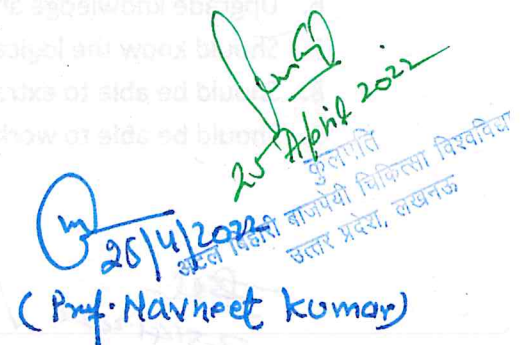 25 April 2022
कुलपति
अटल बिहारी बाजपेयी चिकित्सा विश्वविद्या
उत्तर प्रदेश, लखनऊ
25/4/2022
(Prof. Navneet Kumar)